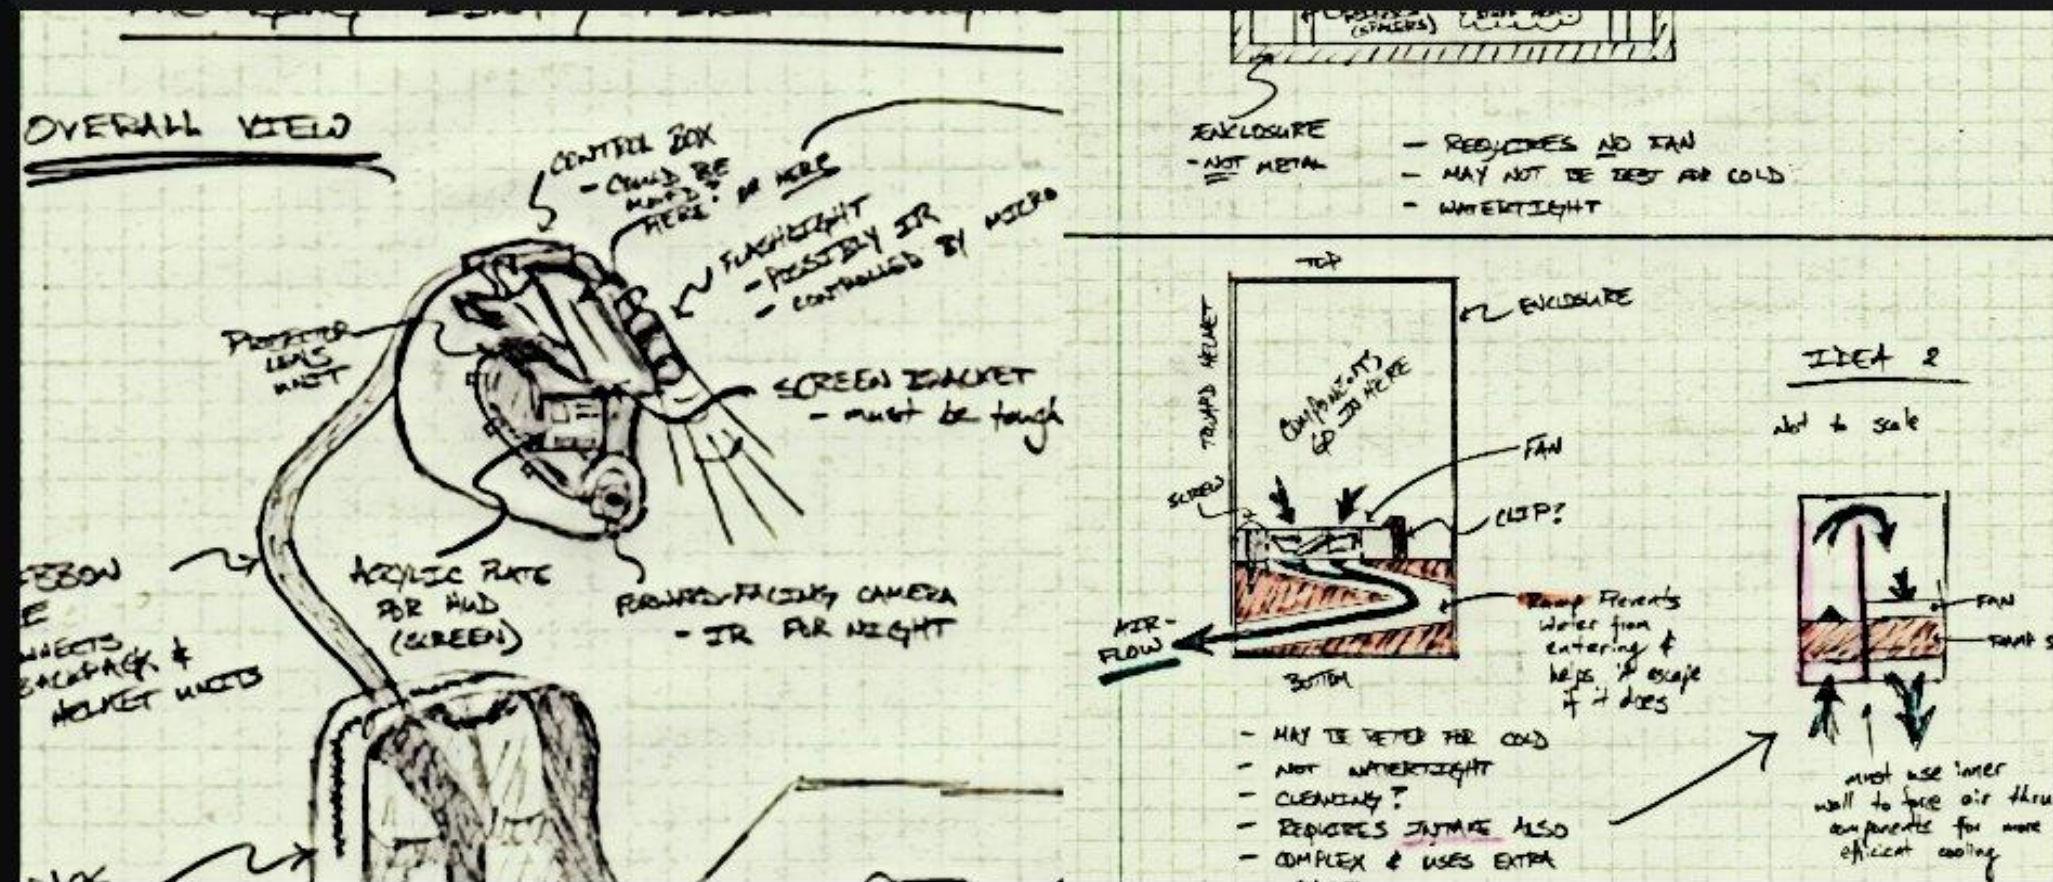 OVERALL VIEW
CONTROL BOX
- COULD BE
HERE? OR HERE
FLASHLIGHT
- POSSIBLY IR
- CONTROLLED BY MICRO
PROJECTOR
LENS
UNIT
SCREEN BRACKET
- must be tough
ACRYLIC PLATE
FOR HUD
(SCREEN)
FORWARD-FACING CAMERA
- IR FOR NIGHT
BACKPACK &
HELMET UNITS
(SPACERS)
ENCLOSURE
- NOT METAL
- REQUIRES NO FAN
- MAY NOT BE BEST FOR COLD
- WATERTIGHT
TOP
TOWARD HELMET
ENCLOSURE
COMPONENTS
GO IN HERE
FAN
SCREW
CLIP?
AIR-
FLOW
BOTTOM
Ramp Prevents
water from
entering &
helps it escape
if it does
- MAY BE BETTER FOR COLD
- NOT WATERTIGHT
- CLEANING?
- REQUIRES INTAKE ALSO
- COMPLEX & USES EXTRA
IDEA 2
Not to scale
FAN
RAMP S
must use inner
wall to force air thru
components for more
efficient cooling